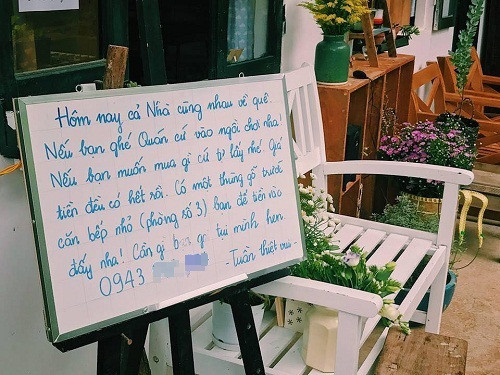 Hôm nay cả Nhà cùng nhau về quê.
Nếu bạn ghé Quán cứ vào ngồi chơi nha!
Nếu bạn muốn mua gì cứ tự lấy nhé. Giá
tiền đều có hết rồi. Có một thùng gỗ trước
căn bếp nhỏ (phòng số 3) bạn để tiền vào
đấy nha! Cần gì gọi tụi mình hen.
0943
Tuần thiệt vui